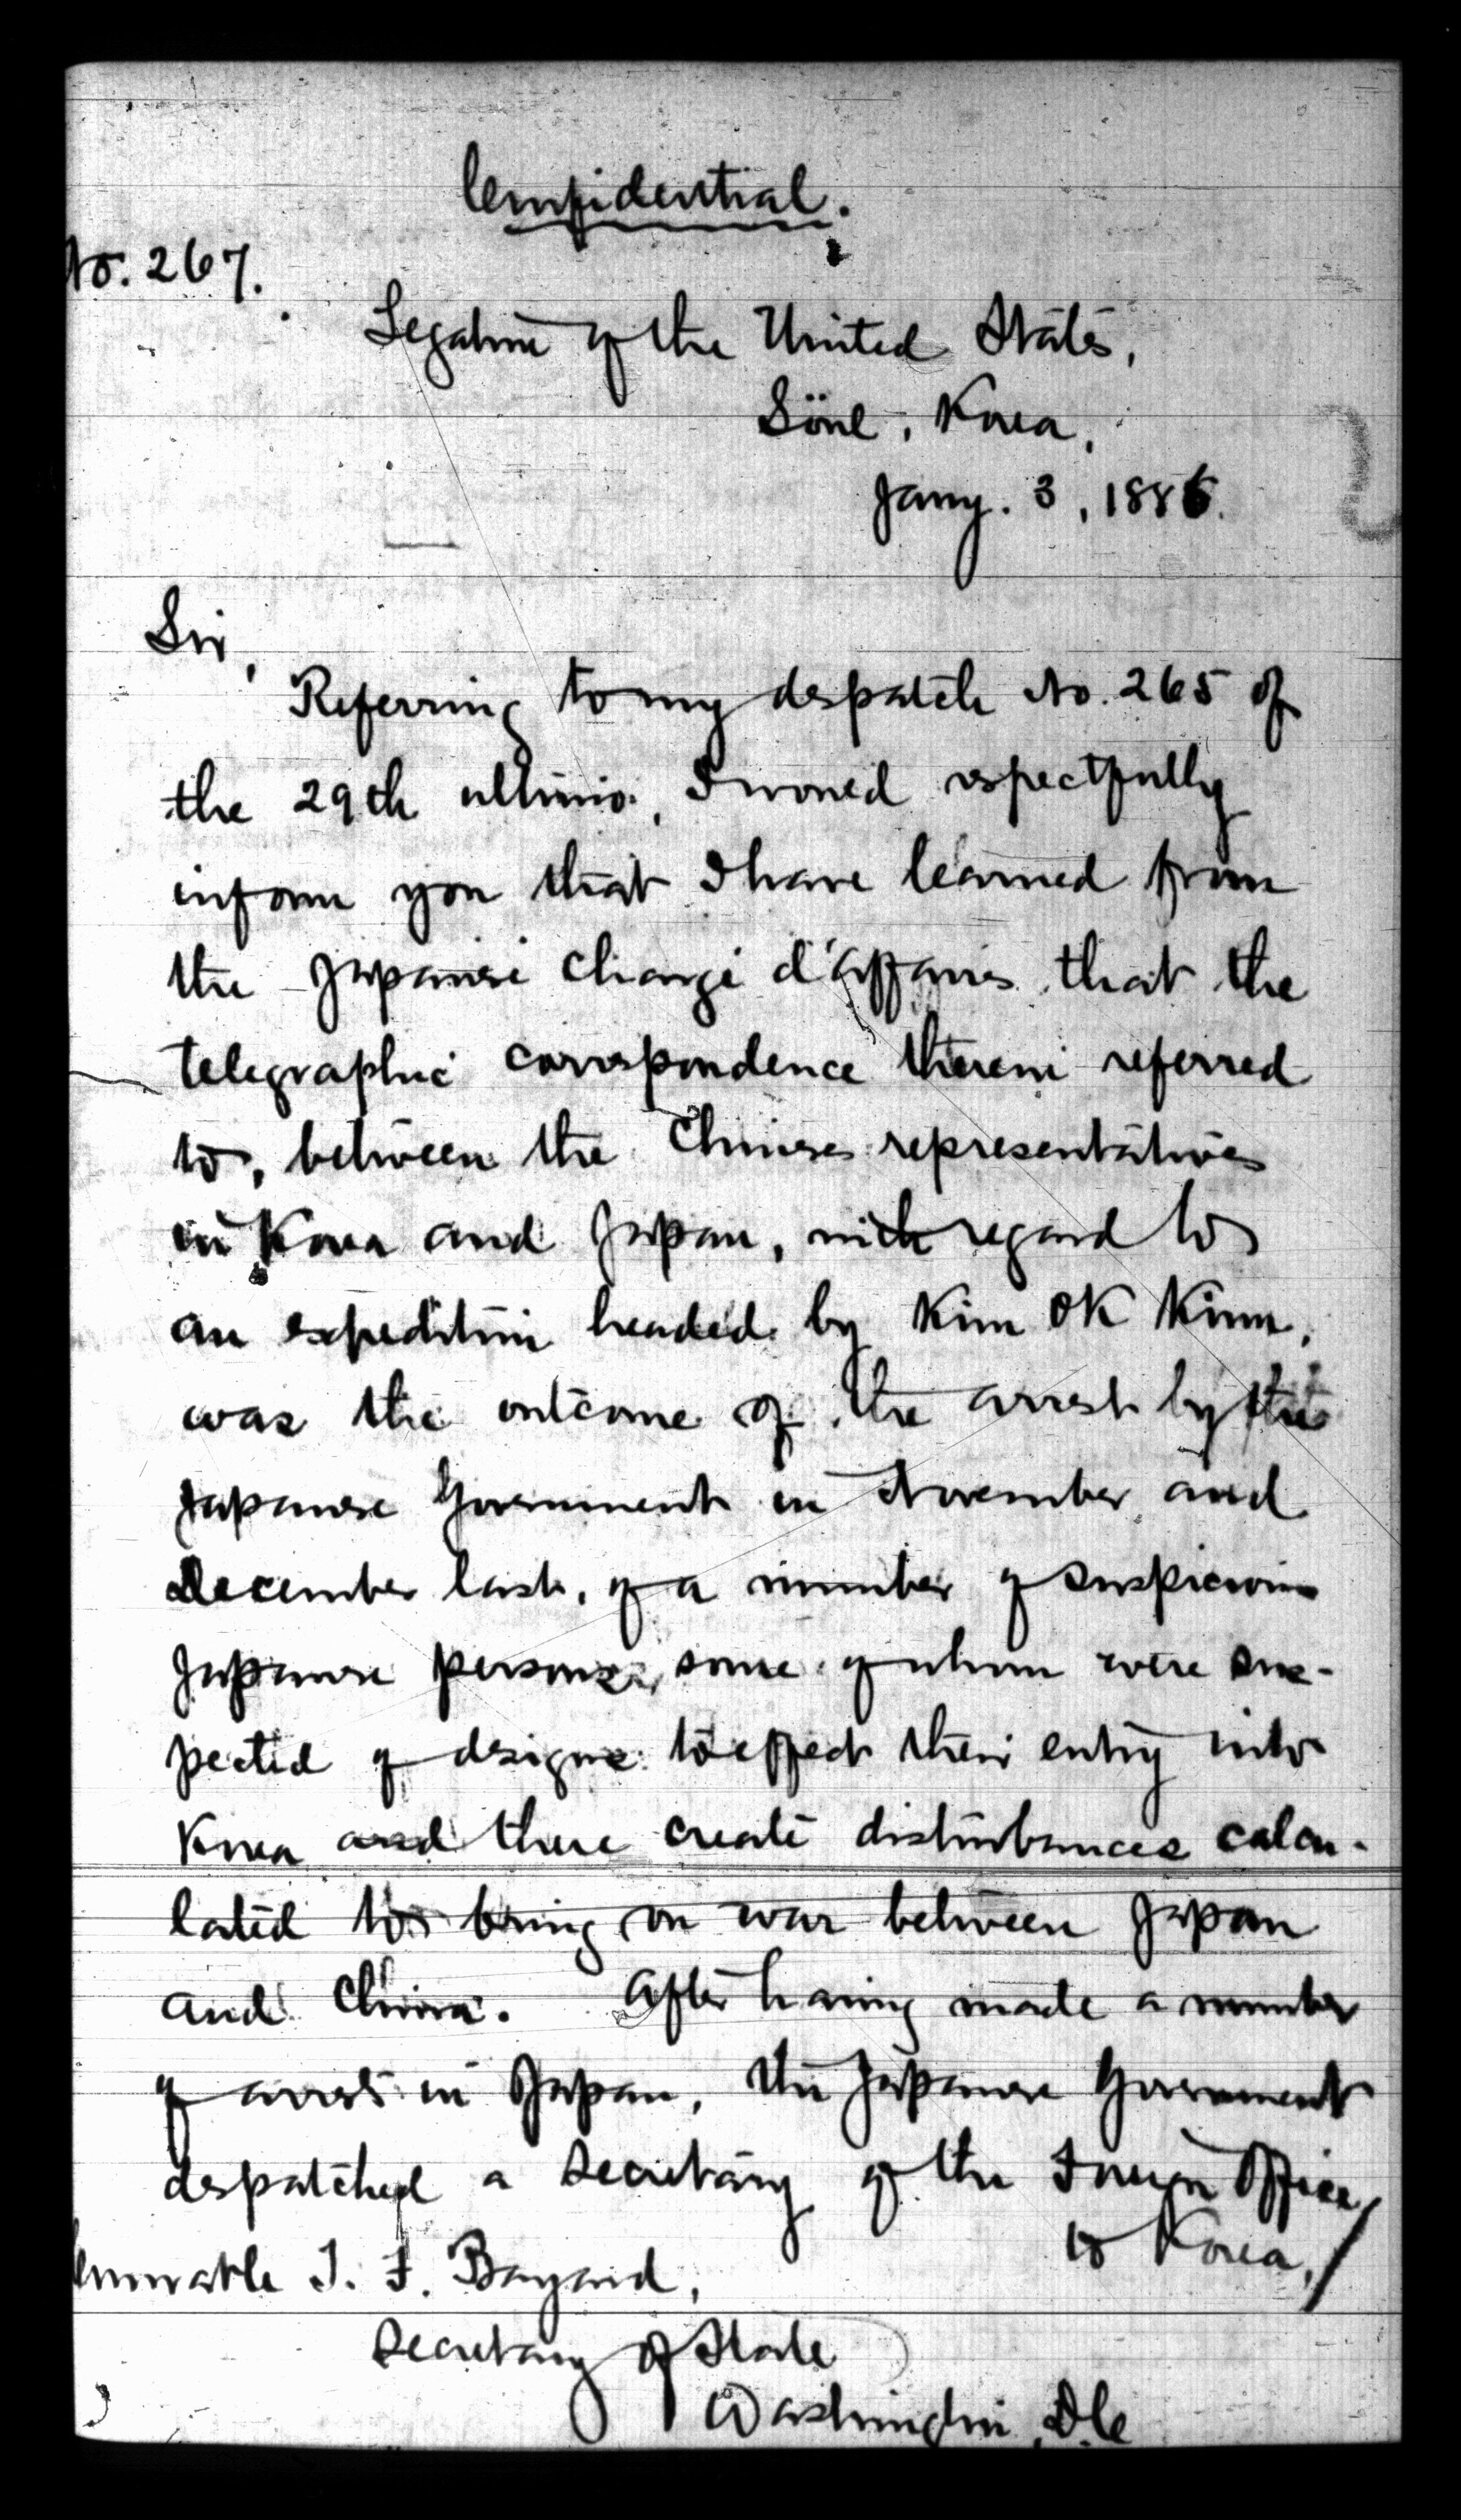 Confidential.
No. 267.
Legation of the United States,
Söul, Korea,
Jany. 3, 1886.
Sir,
Referring to my despatch No. 265 of
the 29th ultimo, I would respectfully
inform you that I have learned from
the Japanese Chargé d'affaires that the
telegraphic correspondence therein referred
to, between the Chinese representatives
in Korea and Japan, with regard to
an expedition headed by Kim Ok Kiun,
was the outcome of the arrest by the
Japanese Government in November and
December last, of a number of suspicious
Japanese persons, some of whom were sus-
pected of designs to effect their entry into
Korea and there create disturbances calcu-
lated to bring on war between Japan
and China. After having made a number
of arrests in Japan, the Japanese Government
despatched a Secretary of the Foreign Office
to Korea,/
Honorable T. F. Bayard,
Secretary of State
Washington, D.C